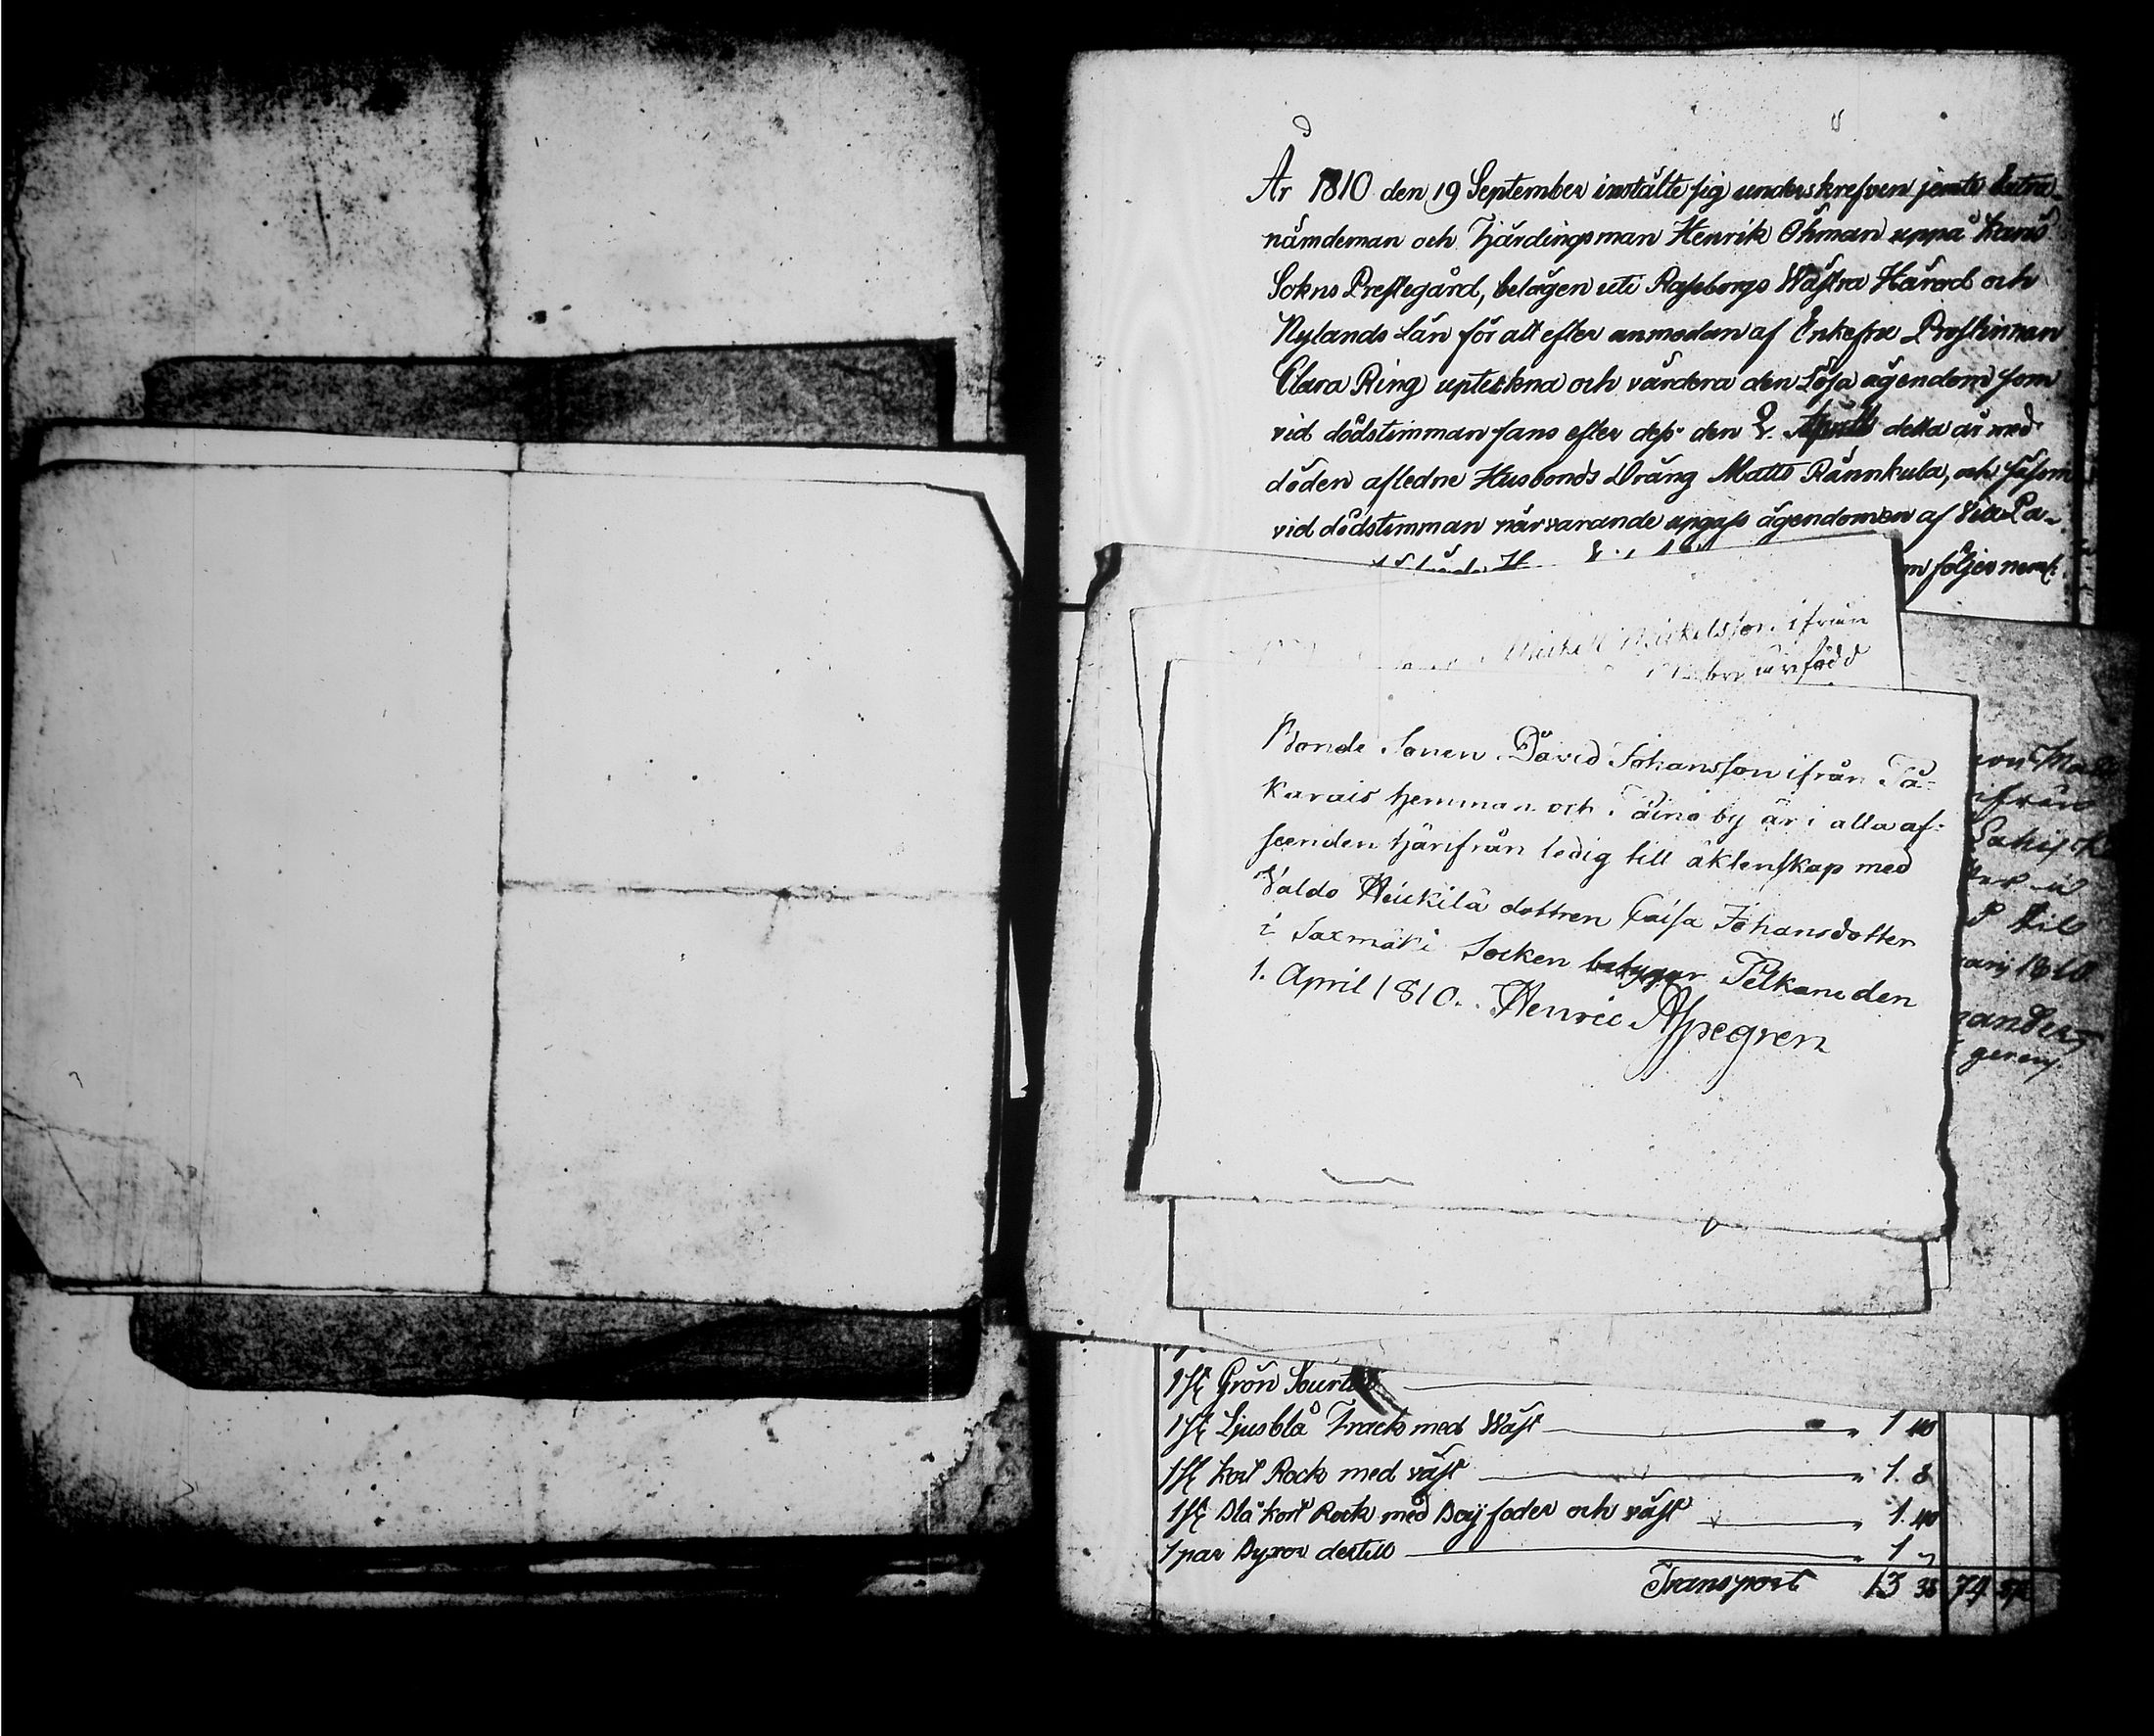 År 1810 den 19 September instälte sig underskrefven jemte Extra
nämdeman och Fjärdingsman Henrik Öhman uppå Karis
Sokns Prestegård, belägen uti Raseborgs Wästra Härad och
Nylands Län för att efter anmodan af Enkefru Prostinnan
Clara Ring upteckna och värdera den Lösa ägendom som
vid dödstimman fans efter dess den 2. April detta år med
döden afledne Husbonds Dräng Matts Rännkula, och såsom
vid dödstimman närvarande upgafs ägendomen af
m följer neml:
Michell Mickelsson ifrån
by är född
Bonde Sonen David Johansson ifrån Pä-
karais hemman och Täino by är i alla af-
seenden härifrån ledig till äktenskap med
Valdo Heickilä dottren Caisa Johansdotter
i Saxmäki Socken betygar Pelkane den
1. April 1810. Henric Aspegren
ifrån
till
1810
1 st Grön
1 st Ljusblå Frack med Wäst " 1 40
1 st kort Rock med väst " 1. 8
1 st Blå kort Rock med Boij foder och väst " 1. 40
1 par Byxor dertill " 1 "
Transport 13 38 74